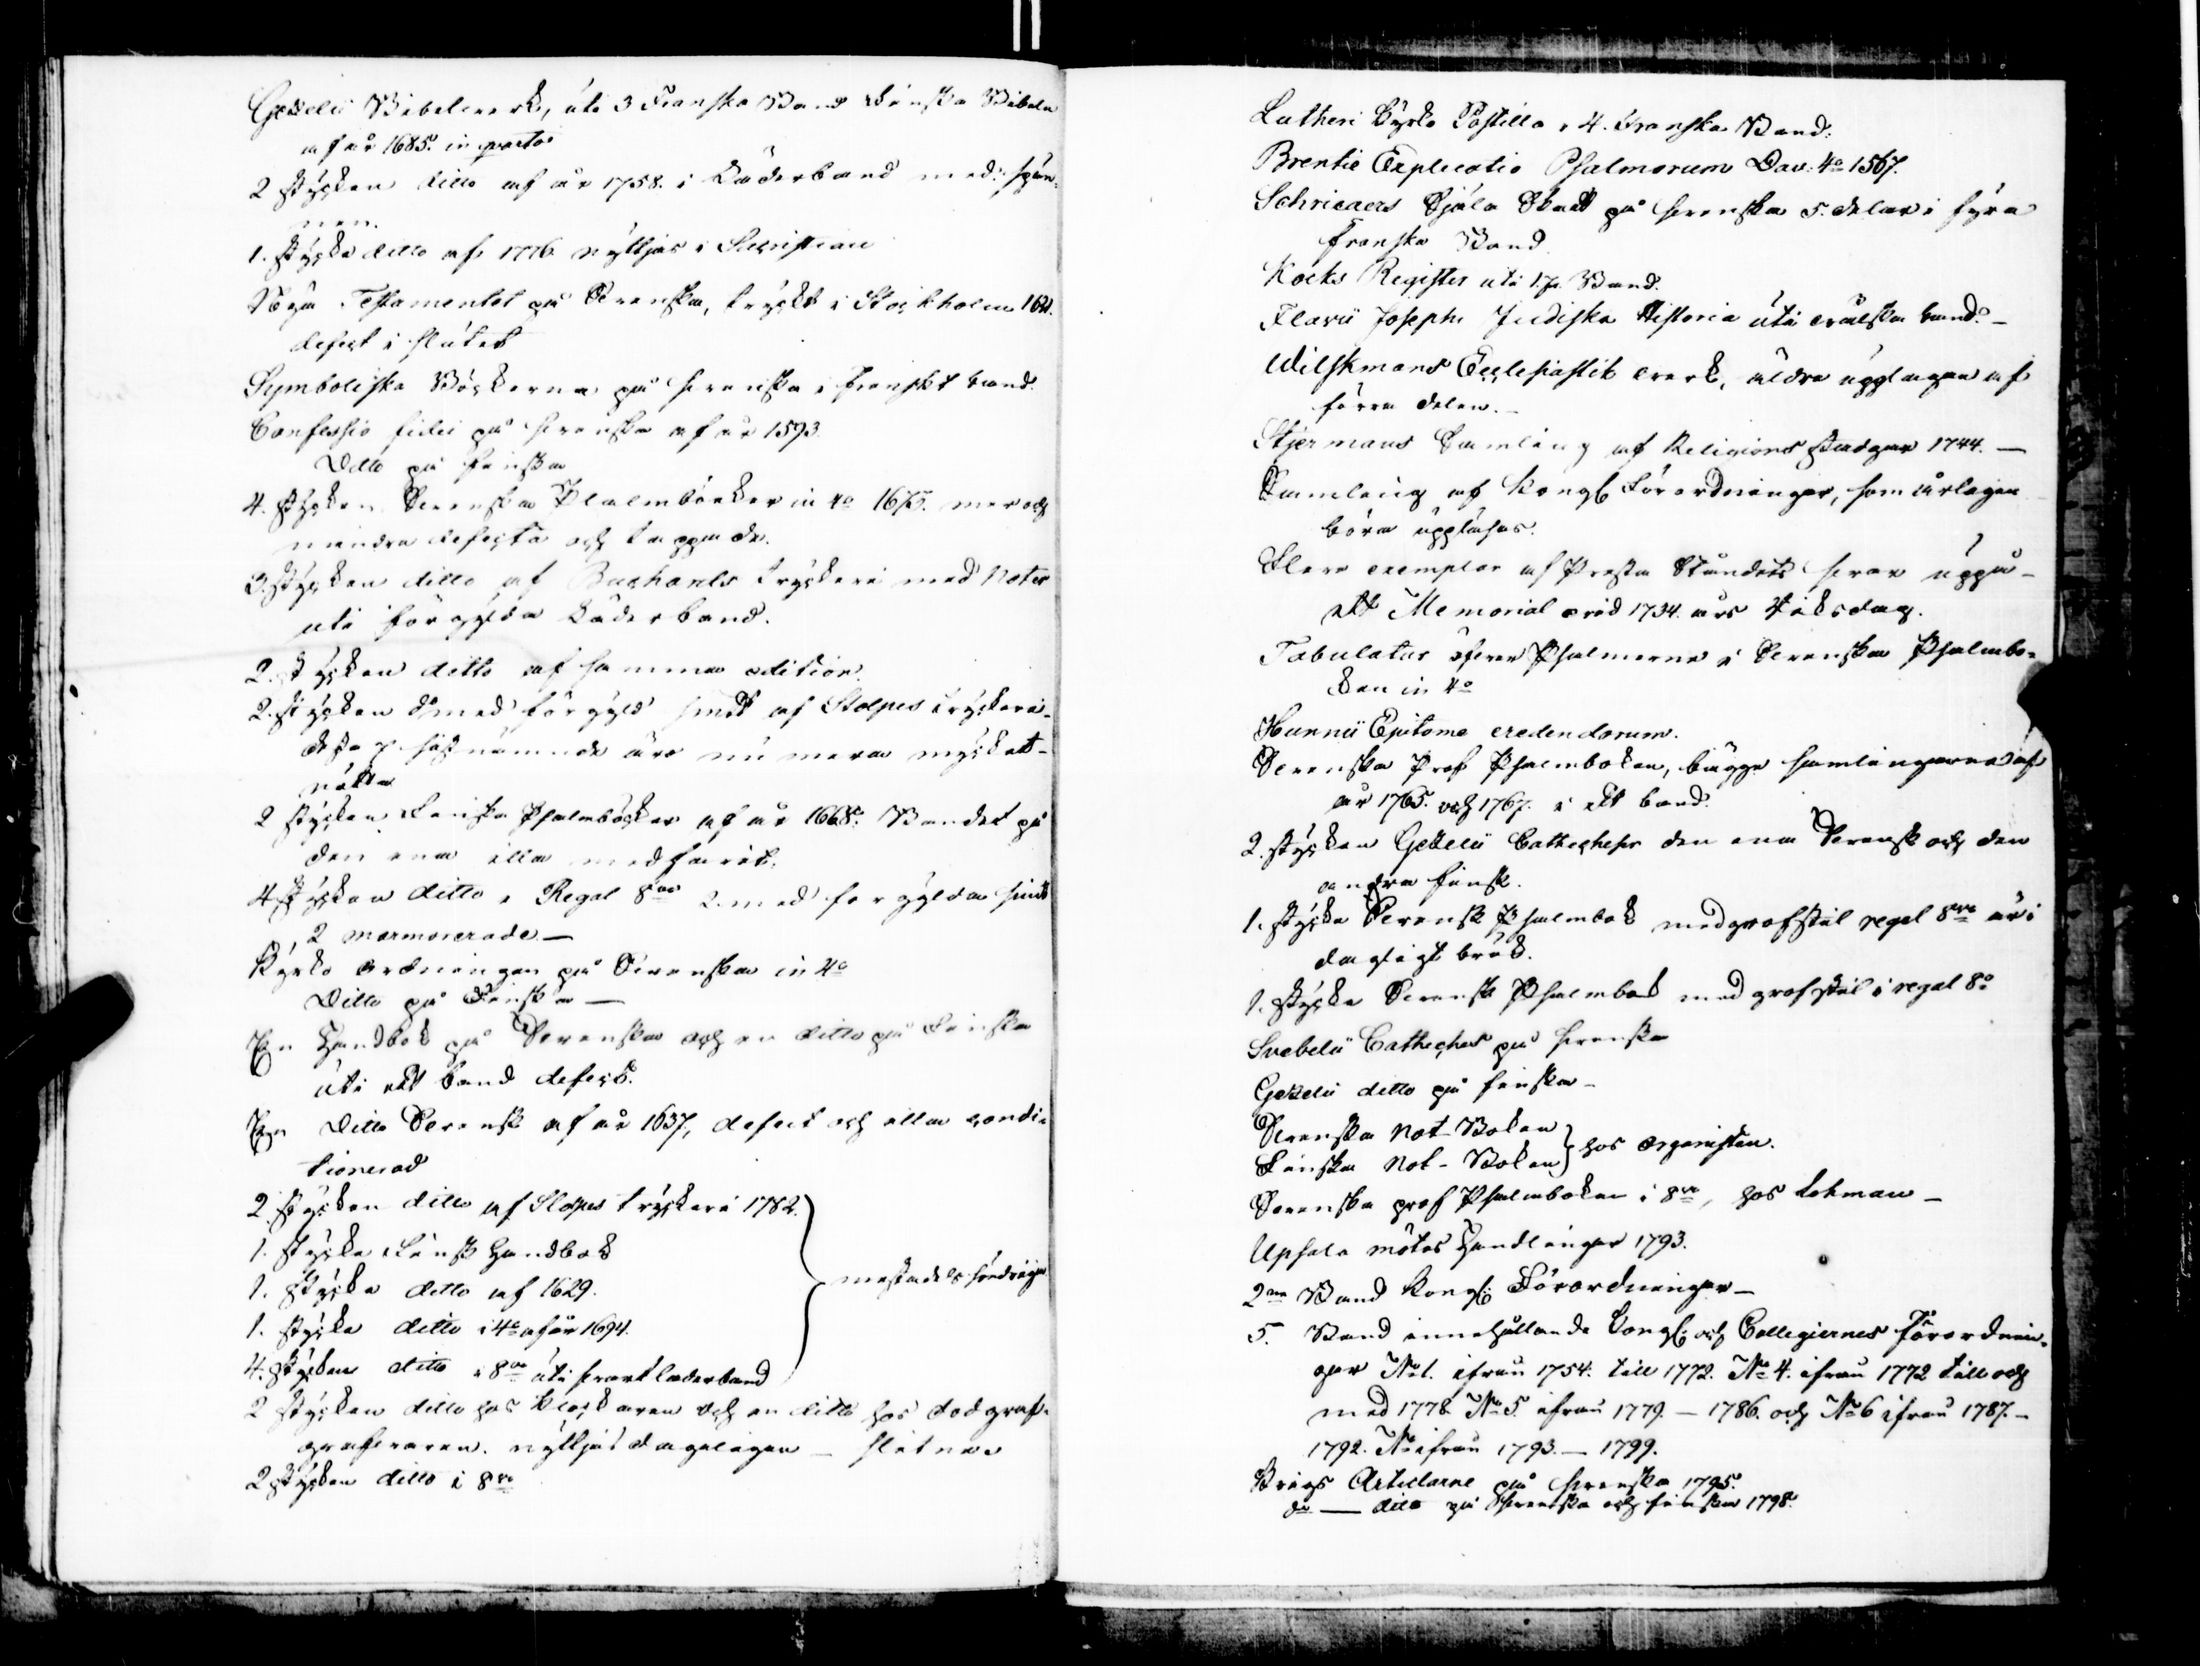 Gezelii Bibelverk, uti 3 Franska Band Finska Bibeln
af år 1685. in quarto
2 stycken ditto af år 1758. i Läderband med: spän-
nen.
1. stycke ditto af 1776. nyttjas i Sacristian
Nya Testamentet på Svenska, tryckt i Stockholm 1621.
defect i slutet
Symboliska Böckerna på svenska i franskt band.
Confessio fidei på svenska af år 1593.
Ditto på finska
4. stycken Svenska Psalmböcker in 4o 1675. mer och
mindre defecta och lappade.
3. stycken ditto af Buchants tryckeri med Noter
uti förgylda Läderband.
2. stycken ditto af samma edition.
2. stycken do med förgyld snitt af Stolpes tryckeri-
dessa 7 sistnämnde äro nu mera mycket-
nötta
2 stycken Finska Psalmböcker af år 1668. Bandet på
den ena illa medfarit.
4 stycken ditto i Regal 8vo 2. med förgylda snitt
2 marmorerade —
Kyrko ordningen på Svenska in 4o
Ditto på Finska —
En Handbok på Svenska och en ditto på Finska
uti ett band defect.
En Ditto Svensk af år 1637, defect och illa condi-
tionerad
2. stycken ditto af Stolpes tryckeri 1782.
1. stycke Finsk Handbok
1. stycke ditto af 1629.
1. stycke ditto i 4o af år 1694.
4. stycken ditto i 8vo uti svart läderband
mestadels söndriga
2 stycken ditto hos Klockaren och en ditto hos dödgraf-
grafvaren. nyttjas dageligen — slitne.
2 stycken ditto i 8vo
Lutheri Kyrko Postilla i 4. Franska Band.
Brentii Explicatio Psalmorum Dav: 4o 1567.
Schrivers Själa Skatt på svenska 5. delar i fyra
franska Band
Kocks Register uti 1. fr. Band.
Flavii Josephi Judiska Historia uti wälska band. —
Wilskmans Ecclesiastik werk, äldre upplagan af
förra delen. —
Stjermans Samling af Religions stadgar 1744. —
Samling af Kongl Förordningar, som årligen
böra uppläsas.
Flere exemplar af Presta Ståndets svar uppå-
ett Memorial vid 1734. års Riksdag.
Tabulatur öfver Psalmerne i Svenska Psalmbo-
ken in 4o
Hunnii Epitome credendorum.
Svenska Prof Psalmboken, bägge samlingarna af
år 1765. och 1767. i ett band.
2. stycken Gezelii Catheches den ena Svensk och den
andra finsk.
1. stycke Svensk Psalmbok med grof stil regal 8vo är i
dagligt bruk.
1. stycke Svensk Psalmbok med grof stil i regal 8o
Svebelii Catheches på svenska
Gezelii ditto på finska —
Svenska Not-Boken
Finska Not-Boken } hos organisten.
Svenska prof Psalmboken i 8vo, hos Lohman —
Upsala mötes Handlingar 1793.
2ne Band Kongl: Förordningar —
5. Band innehållande Kongl: och Collegiernes Förordnin-
gar No 1. ifrån 1754. till 1772. No 4. ifrån 1772 till och
med 1778. No 5. ifrån 1779. — 1786. och No 6 ifrån 1787. —
1792. No ifrån 1793. — 1799.
Krigs Artiklarne på svenska 1795.
do — ditto på svenska och finska 1798.